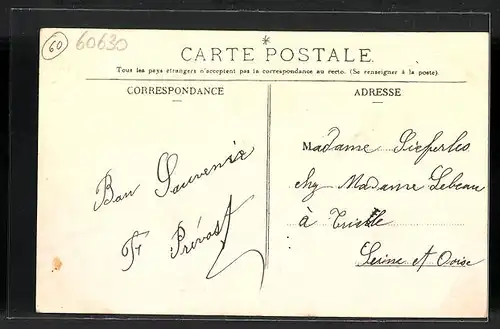 60 60630
CARTE POSTALE.
Tous les pays étrangers n'acceptent pas la correspondance au recto. (Se renseigner à la poste).
CORRESPONDANCE
ADRESSE
Bon Souvenir
Fr Prévost
Madame
chez Madame Lebeau
à
Seine et Oise